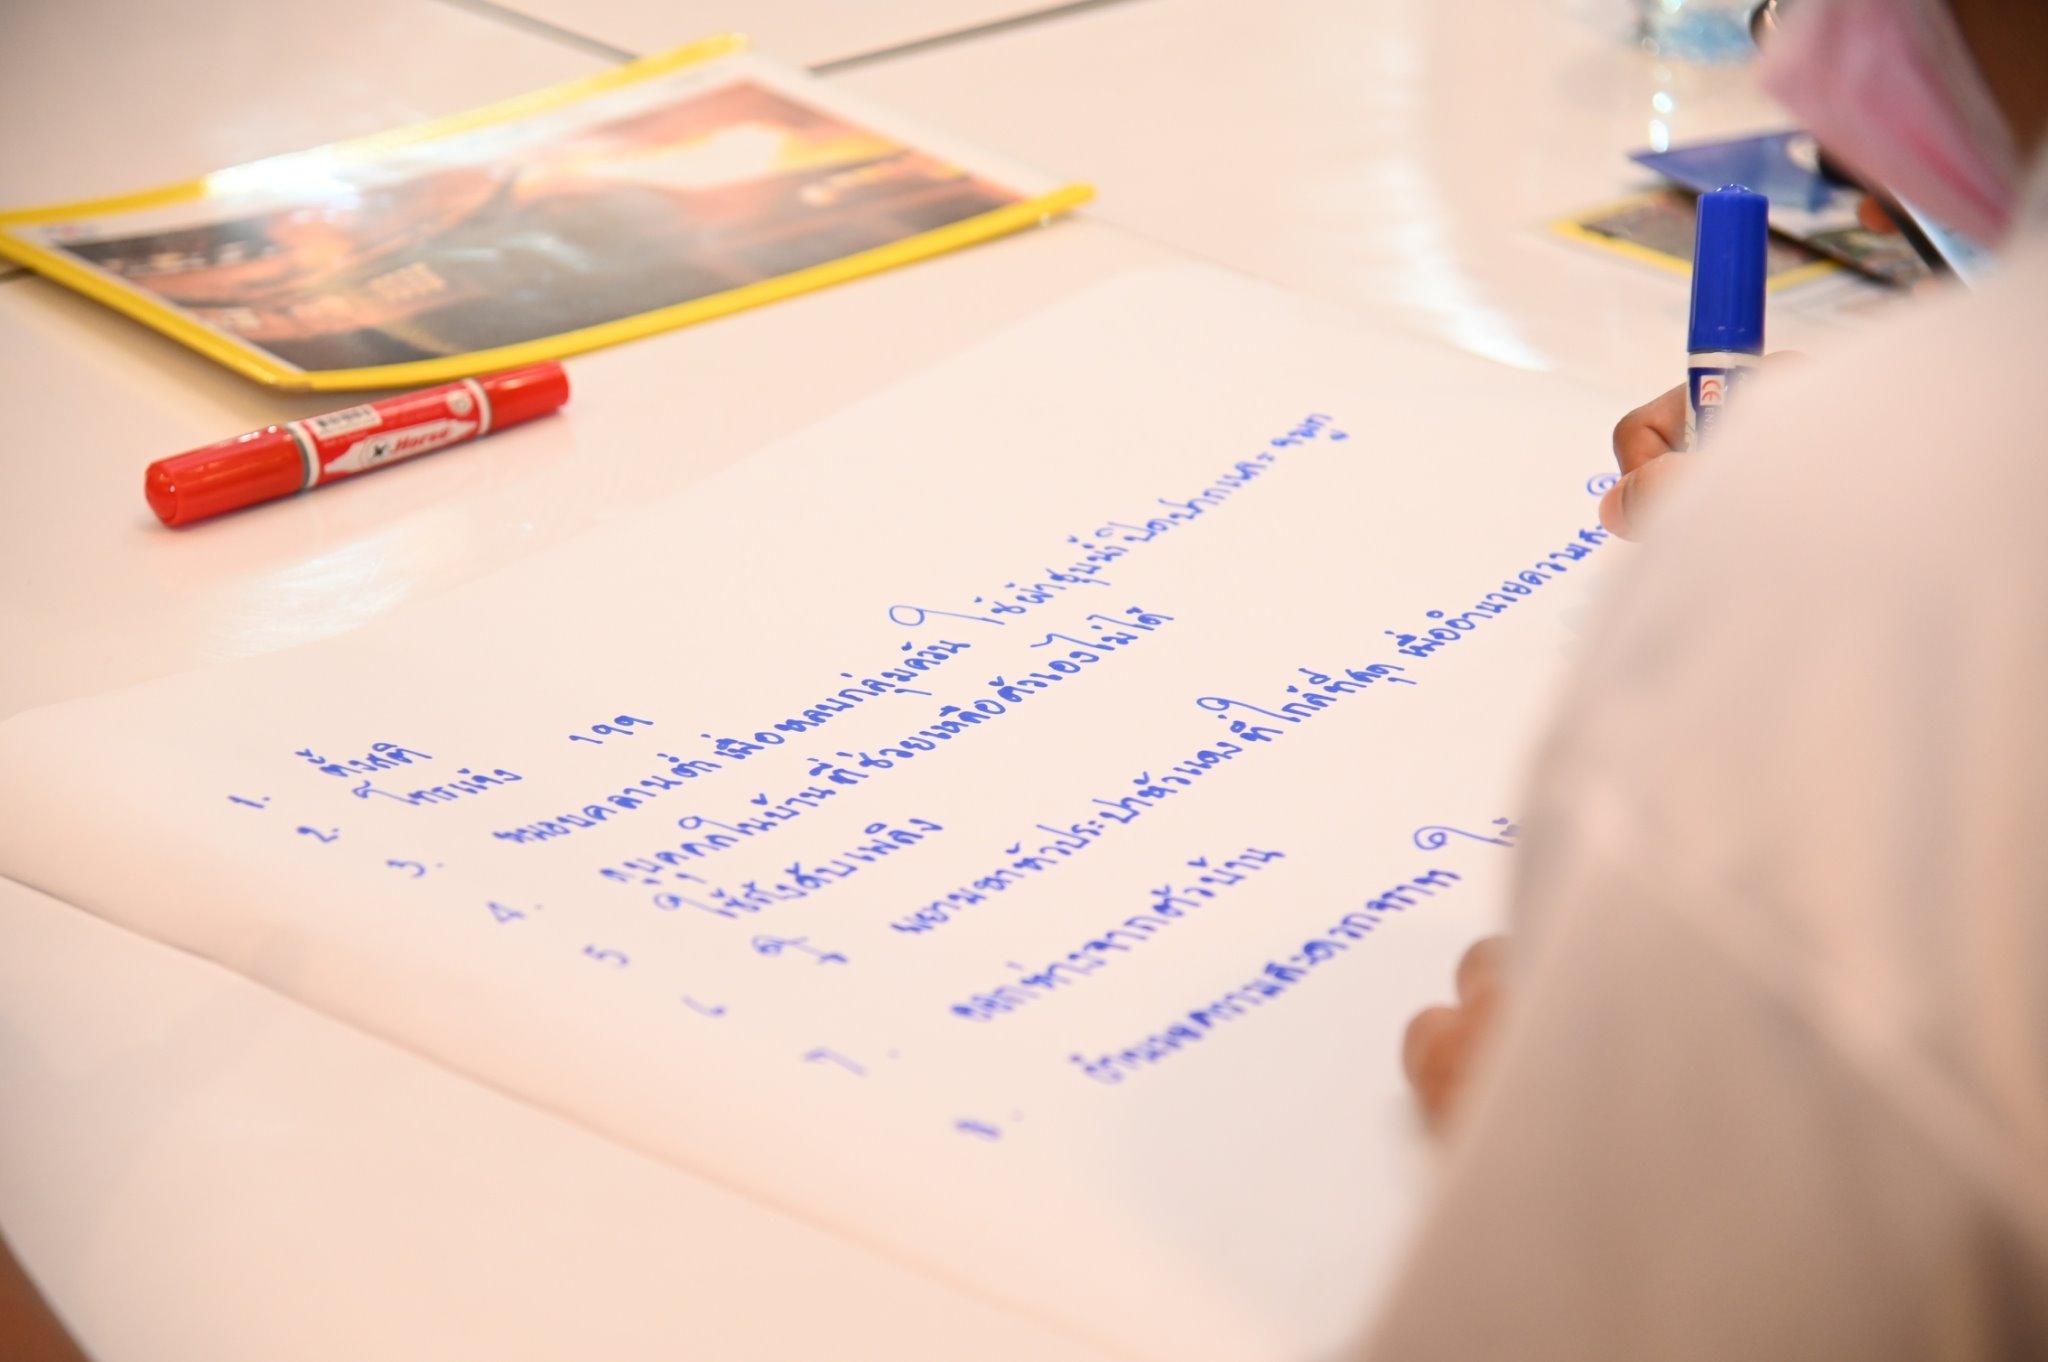 1. ตั้งสติ
2. โทรแจ้ง 199
3. หมอบคลานต่ำ เมื่อพบกลุ่มควัน ใช้ผ้าชุบน้ำปิดปากและจมูก
4. ในบ้านที่ช่วยเหลือตัวเองไม่ได้
5 ใช้ถังดับเพลิง
6 รู้ พยามหาหัวประปาหัวแดง ที่ใกล้ที่สุด เพื่ออำนวยความสะ
7. ออกห่างจากตัวบ้าน
8. อำนวยความสะดวกจราจร ให้
Horse
CE